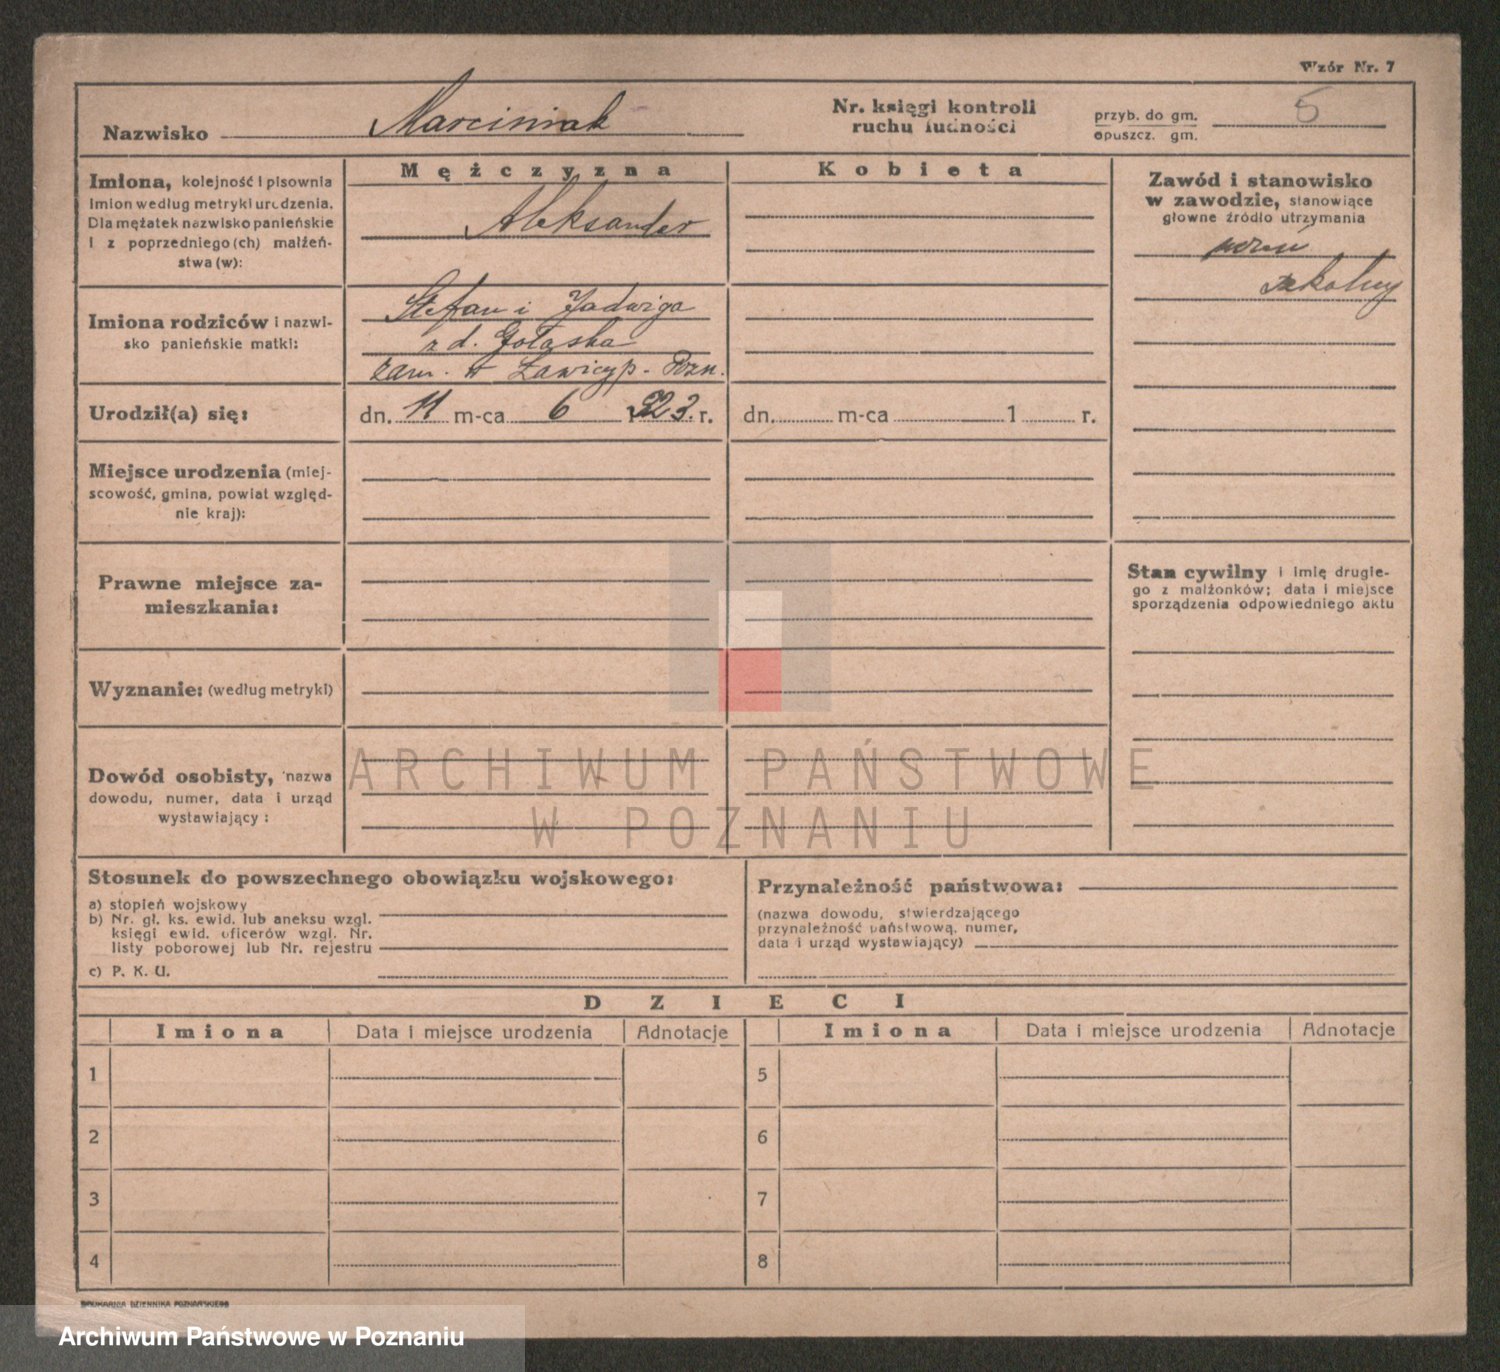 Wzór Nr. 7
Nazwisko Marciniak
Nr. księgi kontroli
ruchu ludności
przyb. do gm. 5
opuszcz. gm.
Imiona, kolejność i pisownia
imion według metryki urodzenia.
Dla mężatek nazwisko panieńskie
i z poprzedniego(ch) małżeń-
stwa(w):
Mężczyzna
Aleksander
Kobieta
Zawód i stanowisko
w zawodzie, stanowiące
główne źródło utrzymania
uczeń
szkolny
Imiona rodziców i nazwi-
sko panieńskie matki:
Stefan i Jadwiga
z d. Gołaska
zam. w Ławicy p. Pozn.
Urodził(a) się:
dn. 11 m-ca 6 1923. r.
dn. m-ca 1 r.
Miejsce urodzenia (miej-
scowość, gmina, powiat względ-
nie kraj):
Prawne miejsce za-
mieszkania:
Stan cywilny i imię drugie-
go z małżonków; data i miejsce
sporządzenia odpowiedniego aktu
Wyznanie: (według metryki)
Dowód osobisty, nazwa
dowodu, numer, data i urząd
wystawiający:
ARCHIWUM PAŃSTWOWE
W POZNANIU
Stosunek do powszechnego obowiązku wojskowego:
a) stopień wojskowy
b) Nr. gł. ks. ewid. lub aneksu wzgl.
księgi ewid. oficerów wzgl. Nr.
listy poborowej lub Nr. rejestru
c) P. K. U.
Przynależność państwowa:
(nazwa dowodu, stwierdzającego
przynależność państwową, numer,
data i urząd wystawiający)
DZIECI
Imiona Data i miejsce urodzenia Adnotacje Imiona Data i miejsce urodzenia Adnotacje
1 5
2 6
3 7
4 8
DRUKARNIA DZIENNIKA POZNAŃSKIEGO
Archiwum Państwowe w Poznaniu